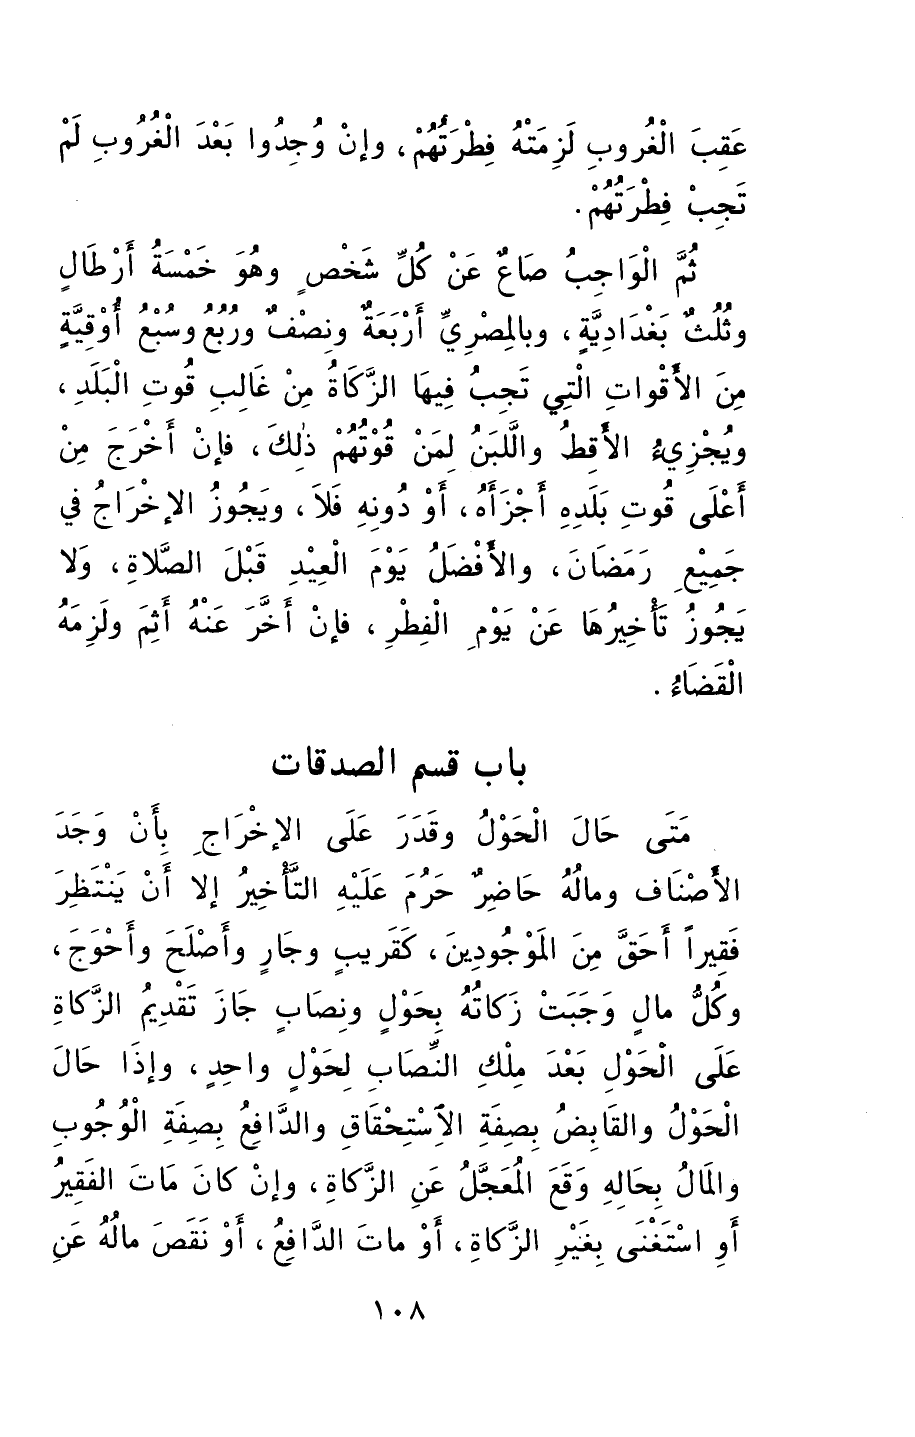 عَقِبَ الْغُروبِ لَزِمَتْهُ فِطْرَتُهُمْ، وإنْ وُجِدُوا بَعْدَ الْغُرُوبِ لَمْ
تَجِبْ فِطْرَتُهُمْ.
ثُمَّ الْوَاجِبُ صَاعٌ عَنْ كُلِّ شَخْصٍ وهُوَ خَمْسَةُ أَرْطَالٍ
وثُلُثٌ بَغْدَادِيَّةٍ، وبالمِصْرِيِّ أَرْبَعَةٌ ونِصْفٌ ورُبُعُ وسُبْعُ أُوْقِيَّةٍ
مِنَ الأَقْواتِ الْتِي تَجِبُ فِيهَا الزَّكَاةُ مِنْ غَالِبِ قُوتِ الْبَلَدِ،
ويُجْزِيءُ الأَقِطُ واللَّبَنُ لِمَنْ قُوْتُهُمْ ذٰلِكَ، فإنْ أَخْرَجَ مِنْ
أَعْلَى قُوتِ بَلَدِهِ أَجْزَأَهُ، أَوْ دُونِهِ فَلاَ، ويَجُوزُ الإخْرَاجُ في
جَمِيْعِ رَمَضَانَ، والأَفْضَلُ يَوْمَ الْعِيْدِ قَبْلَ الصَّلاةِ، وَلا
يَجُوزُ تَأْخِيرُهَا عَنْ يَوْمِ الْفِطْرِ، فإنْ أَخَّرَ عَنْهُ أَثِمَ ولَزِمَهُ
الْقَضَاءُ.
باب قسم الصدقات
مَتَى حَالَ الْحَوْلُ وقَدَرَ عَلَى الإخْرَاجِ بِأَنْ وَجَدَ
الأَصْنَاف ومالُهُ حَاضِرٌ حَرُمَ عَلَيْهِ التَّأْخِيرُ إلا أَنْ يَنْتَظِرَ
فَقِيراً أَحَقَّ مِنَ المَوْجُودِينَ، كَقَريبٍ وجَارٍ وأَصْلَحَ وأَحْوَجَ،
وكُلُّ مالٍ وَجَبَتْ زَكاتُهُ بِحَوْلٍ ونِصَابٍ جَازَ تَقْدِيمُ الزَّكاةِ
عَلَى الْحَوْلِ بَعْدَ مِلْكِ النِّصَابِ لِحَوْلٍ واحِدٍ، وإذَا حَالَ
الْحَوْلُ والقَابِضُ بِصِفَةِ الاِسْتِحْقَاقِ والدَّافِعُ بِصِفَةِ الْوُجُوبِ
والمَالُ بِحَالِهِ وَقَعَ المُعَجَّلُ عَنِ الزَّكاةِ، وإنْ كانَ مَاتَ الفَقِيرُ
أَوِ اسْتَغْنَى بِغَيْرِ الزَّكاةِ، أَوْ ماتَ الدَّافِعُ، أَوْ نَقَصَ مالُهُ عَنِ
١٠٨